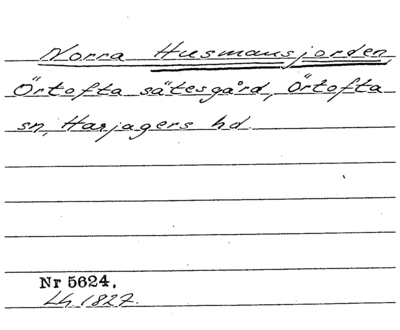 Norra Husmansjorden,
Örtofta sätesgård, Örtofta
sn, Harjagers hd.
Nr 5624.
Lh. 1827.